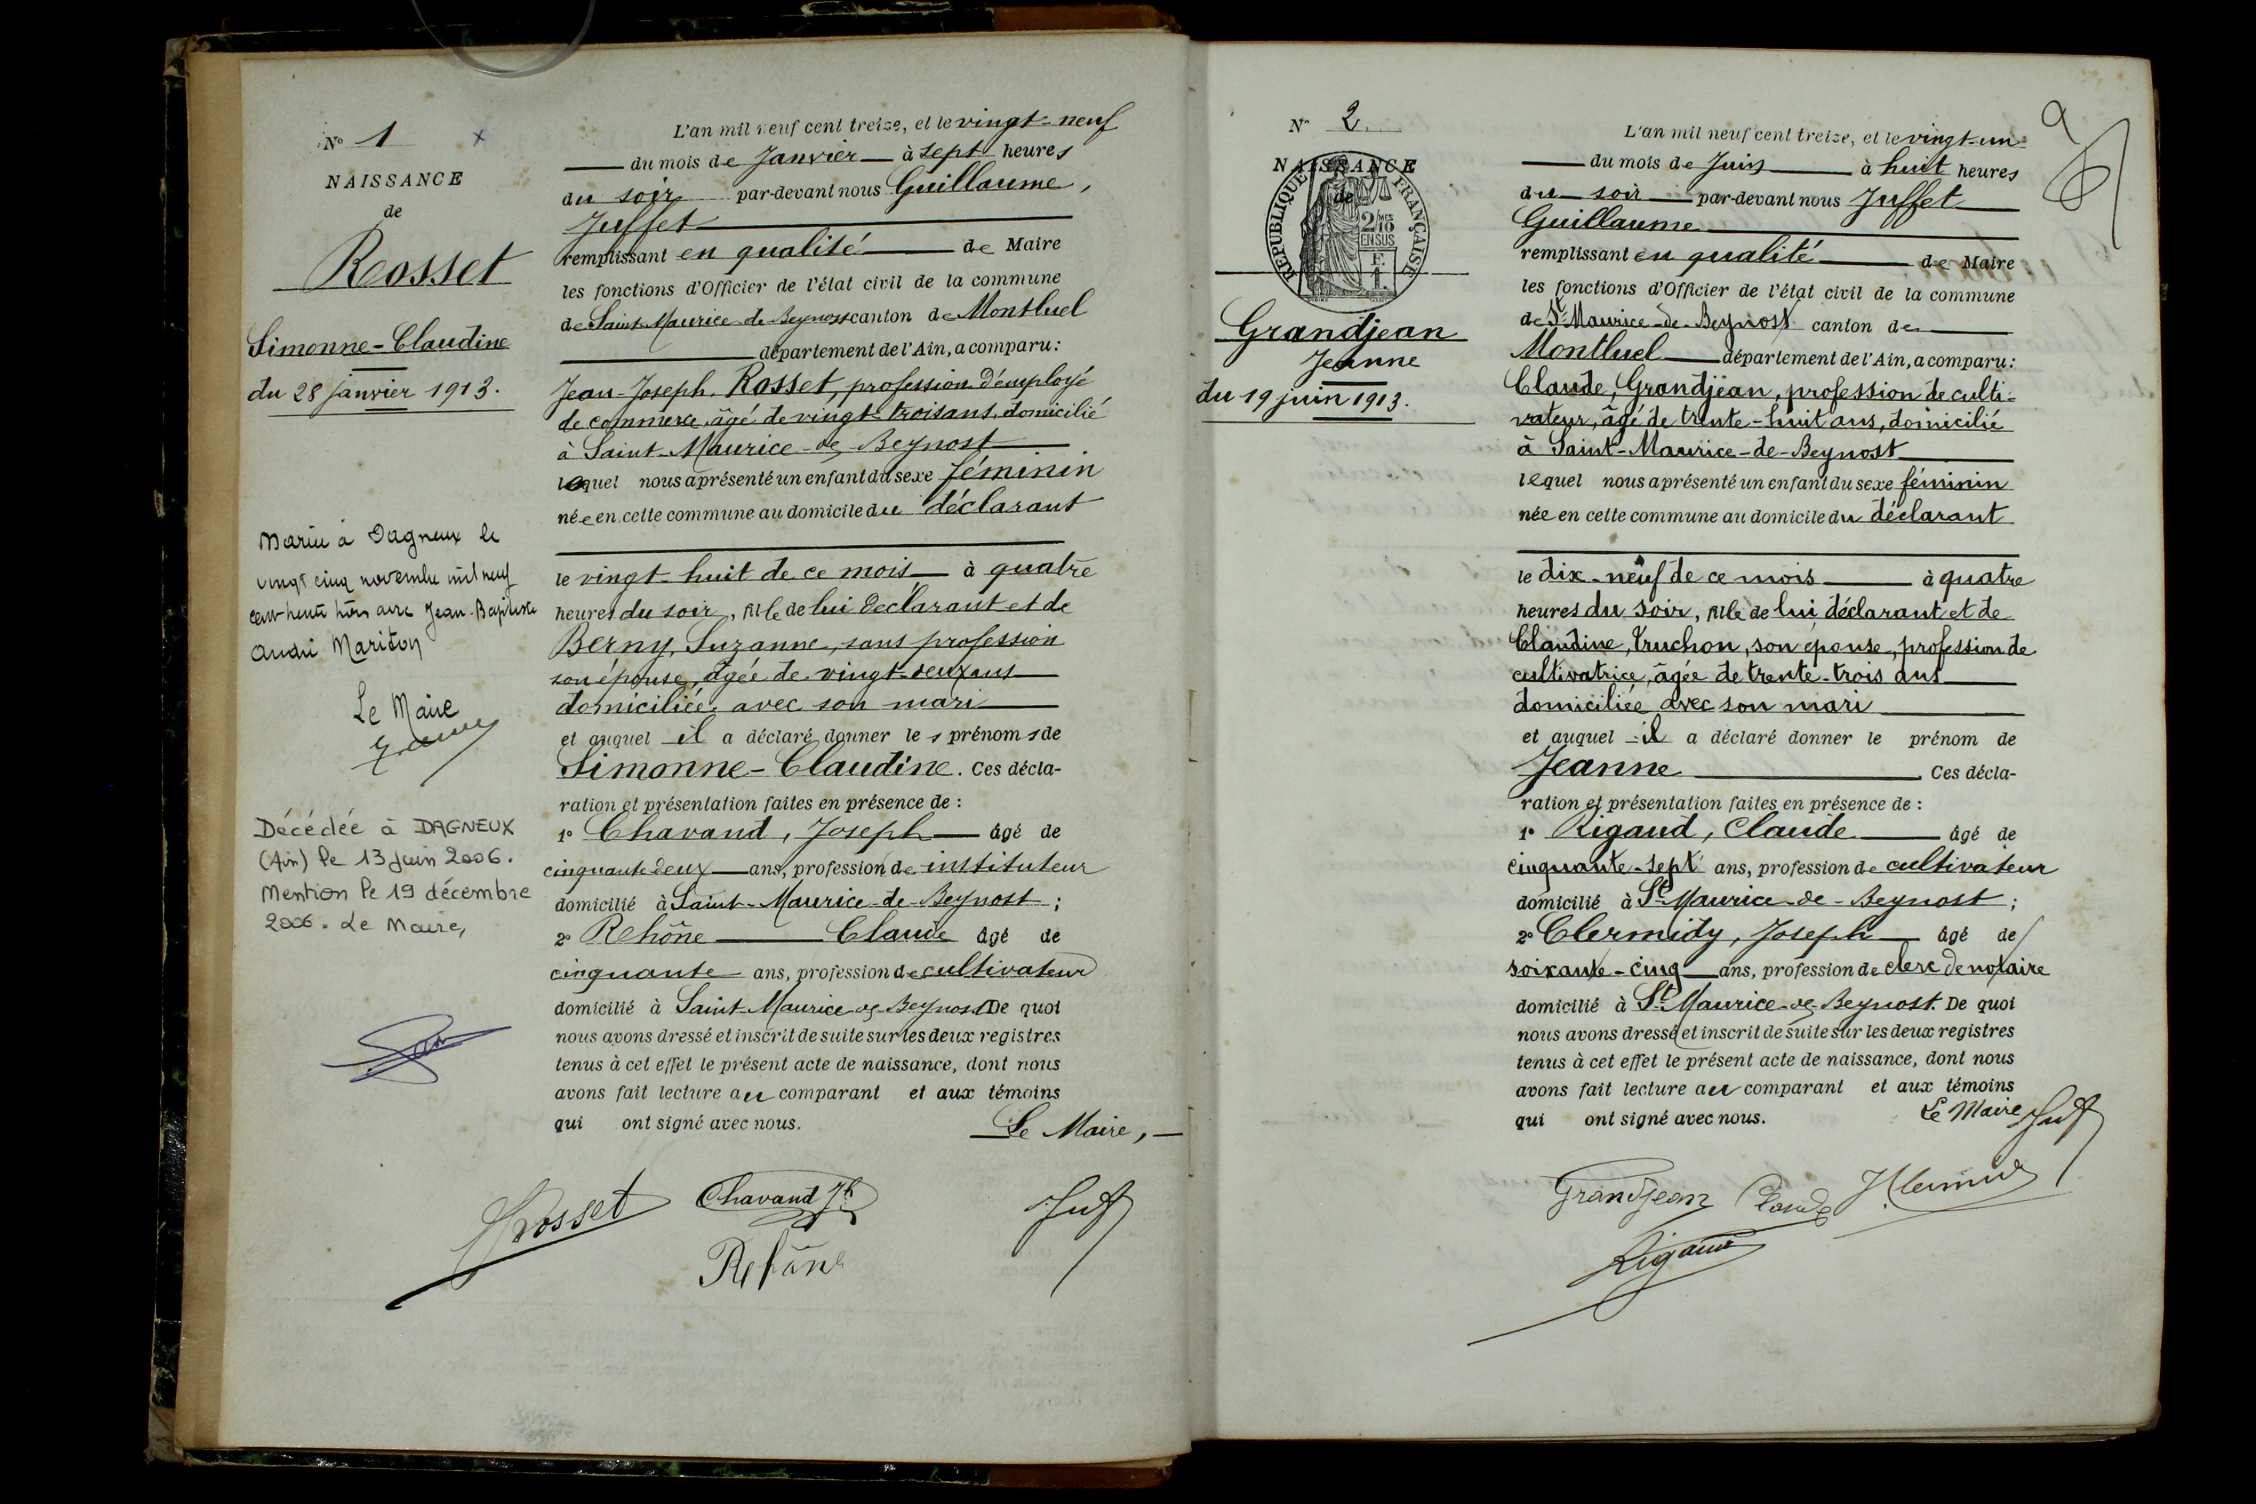 N° 1
NAISSANCE
de
Rosset
Simonne-Claudine
du 28 Janvier 1913.
Mariée à Dagneux le
vingt cinq novembre mil neuf
cent trente trois avec Jean-Baptiste
André Mariton
Le Maire
Décédée à DAGNEUX
(Ain) le 13 juin 2006.
Mention le 19 décembre
2006. Le Maire,
L'an mil neuf cent treize, et le vingt-neuf
du mois de Janvier à sept heures
du soir par-devant nous Guillaume,
Juffet
remplissant en qualité de Maire
les fonctions d'Officier de l'état civil de la commune
de Saint-Maurice-de-Beynost canton de Montluel
département de l'Ain, a comparu:
Jean-Joseph, Rosset, profession d'employé
de commerce, âgé de vingt-trois ans, domicilié
à Saint-Maurice-de-Beynost
lequel nous a présenté un enfant du sexe féminin
née en cette commune au domicile du déclarant
le vingt-huit de ce mois à quatre
heures du soir, fille de lui déclarant et de
Berny, Suzanne, sans profession
son épouse, âgée de vingt-deux ans
domiciliée avec son mari
et auquel il a déclaré donner les prénoms de
Simonne-Claudine. Ces décla-
ration et présentation faites en présence de :
1° Chavand, Joseph âgé de
cinquante deux ans, profession de instituteur
domicilié à Saint-Maurice-de-Beynost ;
2° Rehône Claude âgé de
cinquante ans, profession de cultivateur
domicilié à Saint-Maurice-de-Beynost De quoi
nous avons dressé et inscrit de suite sur les deux registres
tenus à cet effet le présent acte de naissance, dont nous
avons fait lecture au comparant et aux témoins
qui ont signé avec nous.
Le Maire,
Rosset Chavand Jh Juf
Rehône
N° 2
NAISSANCE
de
RÉPUBLIQUE FRANÇAISE
2/10
EN SUS
F.
1.
Grandjean
Jeanne
du 19 juin 1913.
L'an mil neuf cent treize, et le vingt-un
du mois de Juin à huit heures
du soir par-devant nous Juffet
Guillaume
remplissant en qualité de Maire
les fonctions d'Officier de l'état civil de la commune
de St-Maurice-de-Beynost canton de
Montluel département de l'Ain, a comparu:
Claude, Grandjean, profession de culti-
vateur, âgé de trente-huit ans, domicilié
à Saint-Maurice-de-Beynost
lequel nous a présenté un enfant du sexe féminin
née en cette commune au domicile du déclarant
le dix-neuf de ce mois à quatre
heures du soir, fille de lui déclarant et de
Claudine, Truchon, son épouse, profession de
cultivatrice, âgée de trente-trois ans
domiciliée avec son mari
et auquel il a déclaré donner le prénom de
Jeanne Ces décla-
ration et présentation faites en présence de :
1° Rigaud, Claude âgé de
cinquante-sept ans, profession de cultivateur
domicilié à St-Maurice-de-Beynost ;
2° Clermidy, Joseph âgé de
soixante-cinq ans, profession de clerc de notaire
domicilié à St-Maurice-de-Beynost. De quoi
nous avons dressé et inscrit de suite sur les deux registres
tenus à cet effet le présent acte de naissance, dont nous
avons fait lecture au comparant et aux témoins
qui ont signé avec nous.
Le Maire Juf
Grandjean Claude
Rigaud